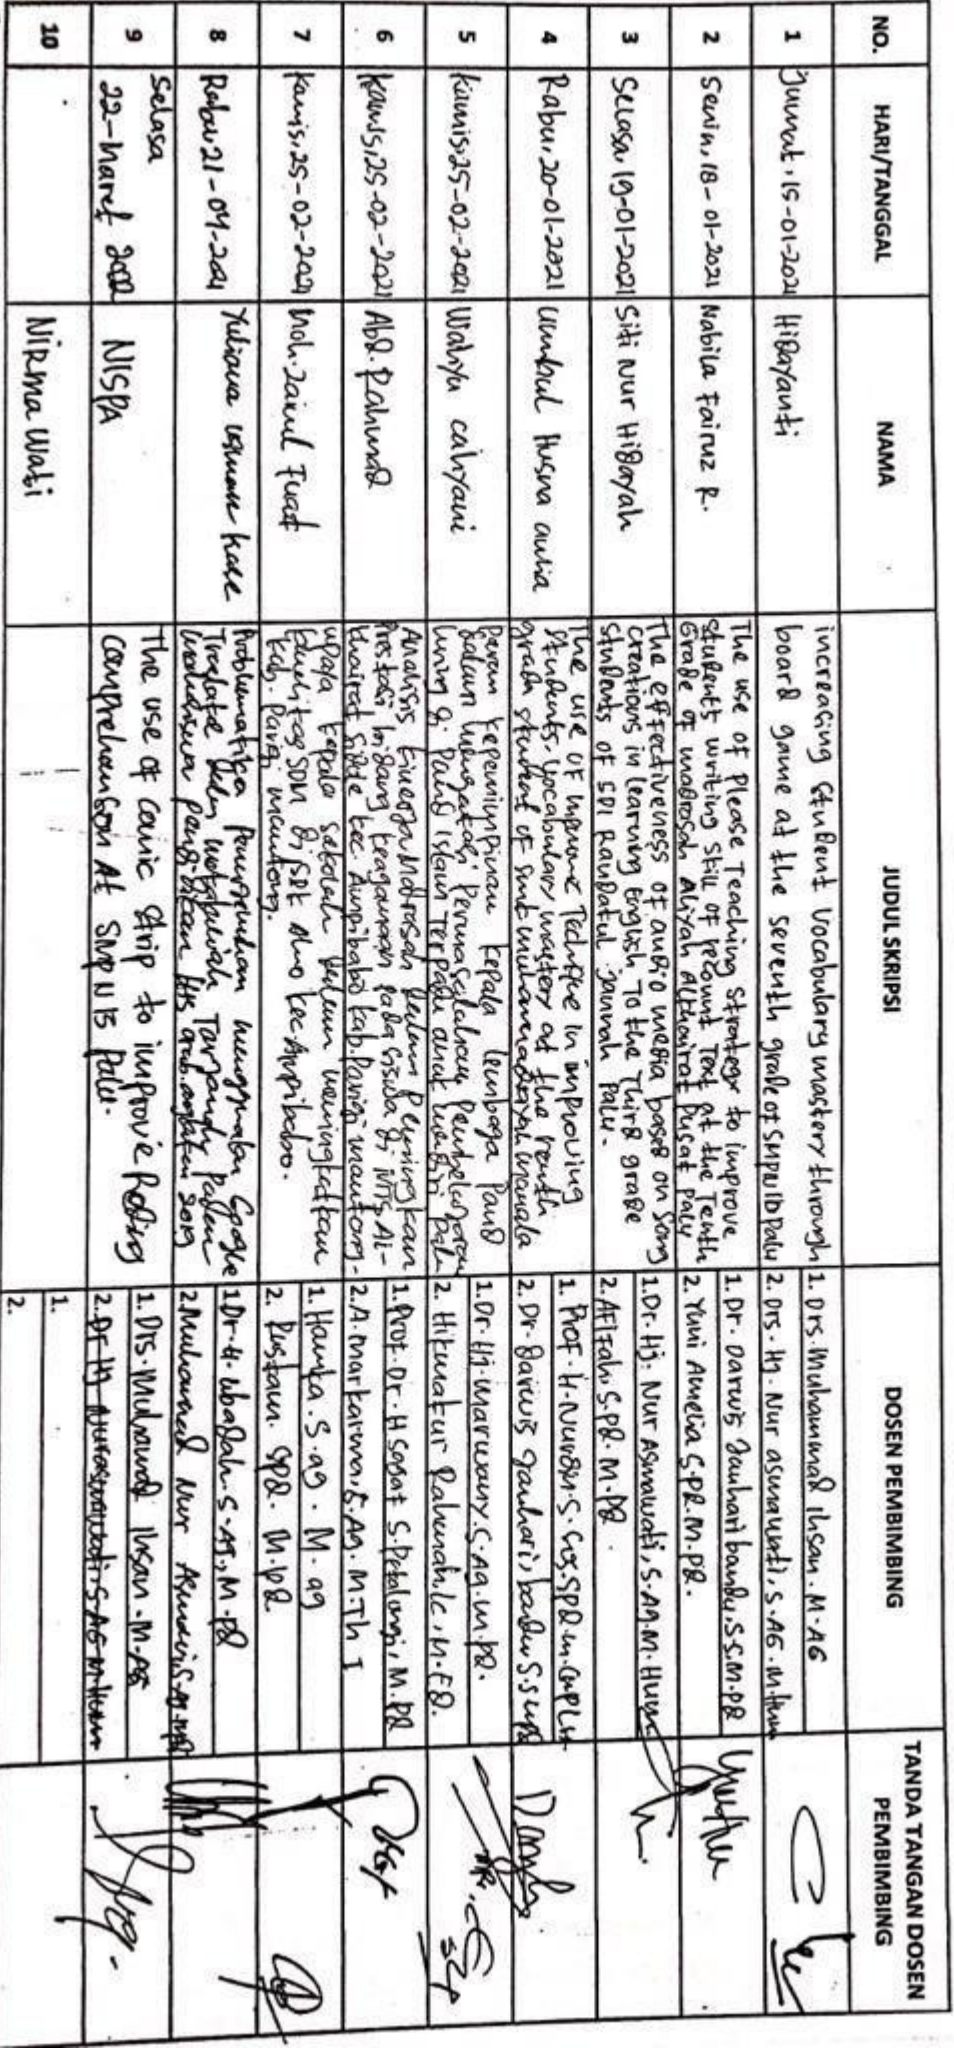 NO.
HARI/TANGGAL
NAMA
JUDUL SKRIPSI
DOSEN PEMBIMBING
TANDA TANGAN DOSEN
PEMBIMBING
1
Jumat, 15-01-2021
Hidayanti
increasing student vocabulary mastery through
board game at the seventh grade of SMPN 10 Palu
1. Drs. Muhammad Ihsan. M.AG
2. Drs. Hj. Nur asmawati. S.AG. M.Hum
2
Senin, 18-01-2021
Nabila Fairuz R.
The use of Please Teaching Strategy to improve
students writing skill of recount Text at the Tenth
Grade of madrasah aliyah alkhairat Pusat Palu
1. Dr. Darwis Jauhari bandu. S.S. M.Pd
2. Yuni Amelia S.Pd. M.Pd.
3
Selasa, 19-01-2021
Siti Nur Hidayah
The effectiveness of audio media based on song
creations in learning English To the Third grade
students of SDI Raudatul jannah Palu.
1. Dr. Hj. Nur Asmawati, S.Ag. M.Hum
2. Afifah. S.Pd. M.Pd
4
Rabu, 20-01-2021
Ummul Husna aulia
The use of in improving
students vocabulary mastery at the
grade student of
1. Prof. H. Nurdin. S.
2. Dr. Darwis Jauhari, bandu S.S M.Pd
5
Kamis, 25-02-2021
Wahyu cahyani
Peran kepemimpinan kepala lembaga Paud
dalam mengatasi Permasalahan Pembelajaran
di Paud islam Terpadu anak Palu
1. Dr. Hj. S.Ag. M.Pd.
2. Hikmatur Rahmah. lc, M.ED.
6
Kamis, 25-02-2021
Abd. Rahmad
Analisis kinerja Madrasah dalam Peningkatan
Prestasi bidang keagamaan Pada siswa di MTs Al-
khairat kec. Ampibabo kab. Parigi moutong.
1. Prof. Dr. H Sagaf S. Pettalongi, M.Pd
2. A. markarma, S.Ag. M.Th I
7
Kamis, 25-02-2021
Moh. Zainul Fuad
Upaya kepala sekolah dalam meningkatkan
kualitas SDM di kec Ampibabo.
kab. Parigi moutong.
1. Hamka. S.ag. M.ag
2. Rustam. SPd. M.Pd
8
Rabu, 21-04-2021
Yuliana usman
Problematika Penerjemahan menggunakan Google
Translate
mahasiswa pendidikan
1. Dr. H. Ubadah. S.Ag, M.Pd
2. Muhammad Nur
9
Selasa
22-Maret 2022
NISPA
The use of comic strip to improve Reding
comprehension At SMP N 15 Palu.
1. Drs. Muhammad Ihsan. M.AG
2. Dr Hj Nurasmawati. S.AG M.Hum
10
Nirma Wati
1.
2.